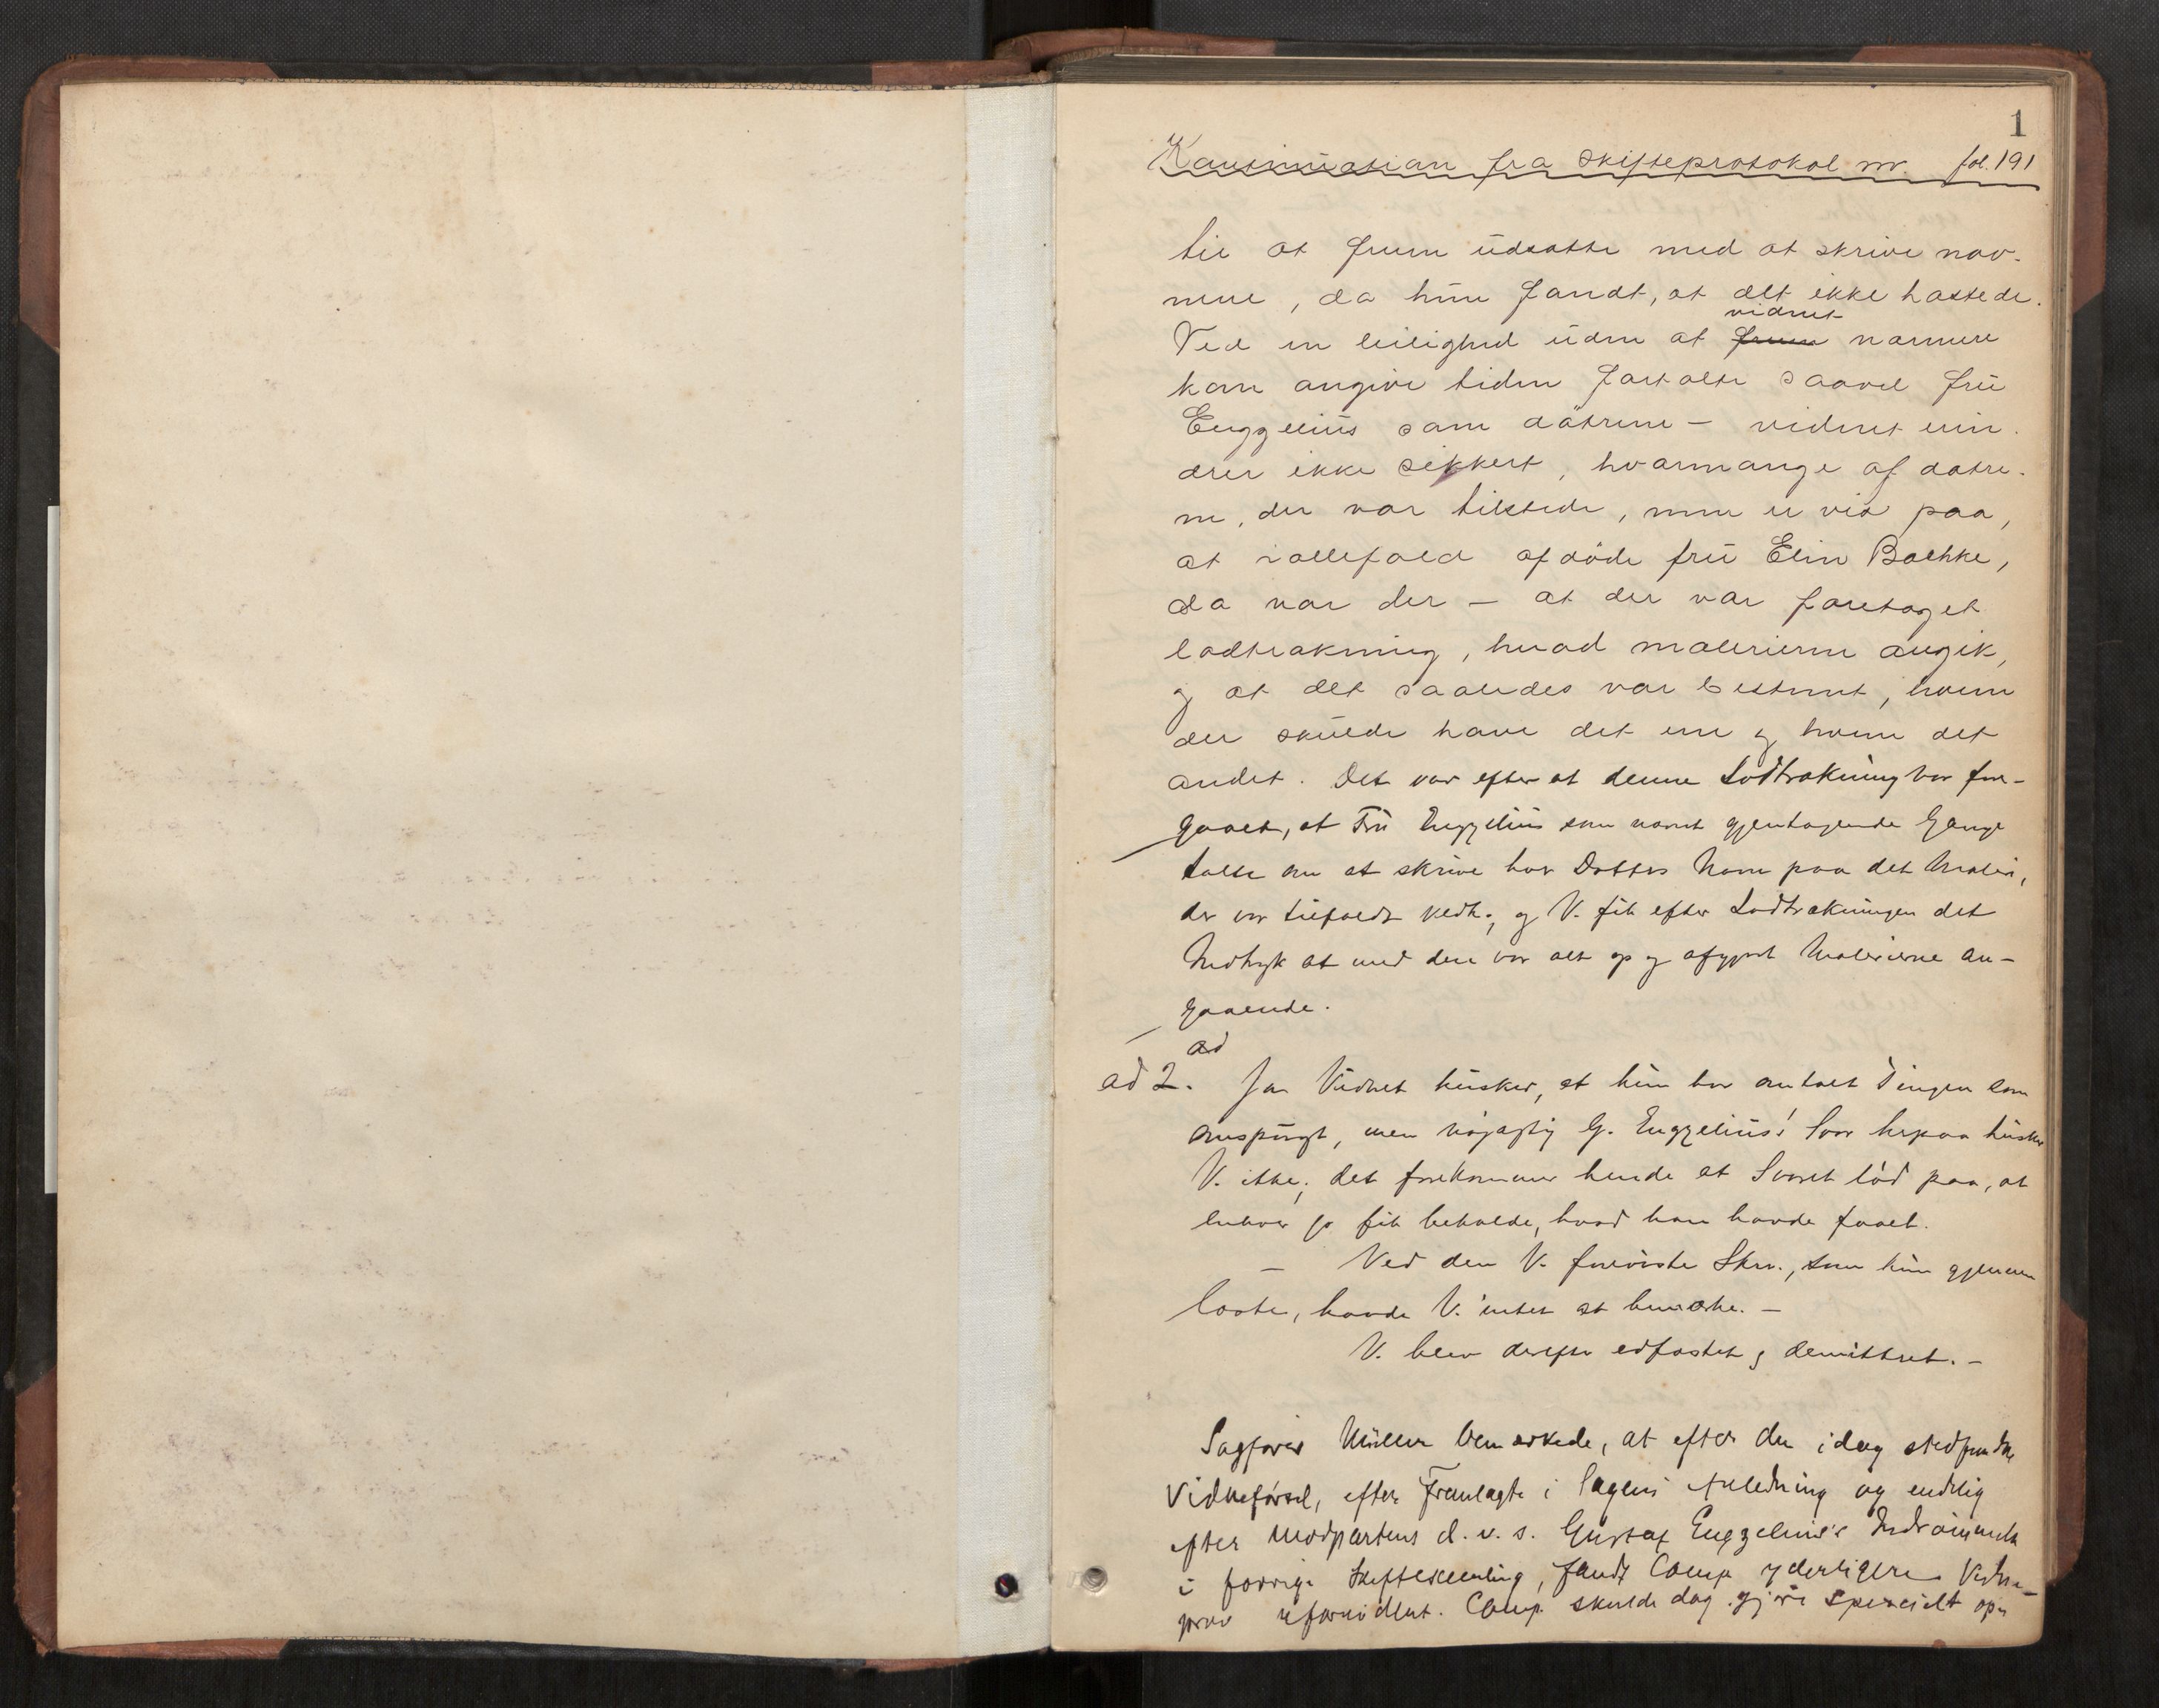 1
Kontinuation fra Skifteprotokol nr. fol. 191
til at fruen udsatte med at skrive nav-
nene, da hun fandt, at det ikke hastede.
vidnet
Ved en leilighed uden at fruen nærmere
kan angive tiden fortalte saavel fru
Engzelius som døtrene – vidnet erin-
drer ikke sikkert, hvormange af døtre-
ne, der var tilstede, men er vis paa,
at iallefald afdøde fru Elin Baehke,
da var der – at der var foretaget
lodtrækning, hvad malerierne angik,
og at det saaledes var bestemt, hvem
der skulde have det ene og hvem det
andet. Det var efter at denne Lodtrækning var fore-
gaaet, at Fru Engzelius som nævnt gjentagende Gange
talte om at skrive hver Datters Navn paa det Maleri,
der var tilfaldt vedk., og V. fik efter Lodtrækningen det
Indtryk at med den var alt op og afgjort Malerierne an-
gaaende.
ad
ad 2. Ja Vidnet husker, at hun har omtalt Tingen som
omspurgt, men nøjagtig G. Engzelius's Svar herpaa husker
V. ikke; det forekommer hende at Svaret lød paa, at
enhver jo fik beholde, hvad han havde faaet.
– Ved den V. foreviste Skr., som hun gjennem
læste, havde V. intet at bemærke. –
V. blev derefter edfæstet og demitteret. –
Sagfører Müller bemærkede, at efter den idag stedfundne
Vidneførsel, efter Fremlagte i Sagens Anledning og endelig
efter Modpartens d. v. s. Gustaf Engzelius's Indrømmelse
i forrige Skiftesamling, fandt Comp. yderligere Vidne-
prov ufornødent. Comp. skulde dog gjøre specielt op-